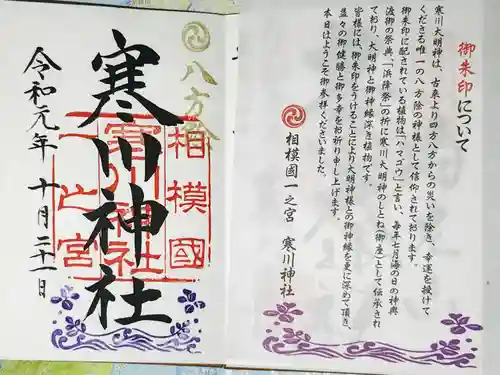 御朱印について
寒川大明神は、古来より四方八方からの災いを除き、幸運を授けて
くださる唯一の八方除の神様として信仰されております。
御朱印に配されている植物は「ハマゴウ」と言い、毎年七月海の日の神輿
渡御の祭典「浜降祭」の折に寒川大明神のしとね(御座)として伝承され
ており、大明神と御神縁深き植物です。
皆様には、御朱印をうけることにより大明神様との御神縁を更に深めて頂き、
益々の御健勝と御多幸をお祈り申し上げます。
本日はようこそ御参拝くださいました。
相模國一之宮 寒川神社
八方除
相模國
寒川神社
寒川神社
一之宮
令和元年 十月二十一日